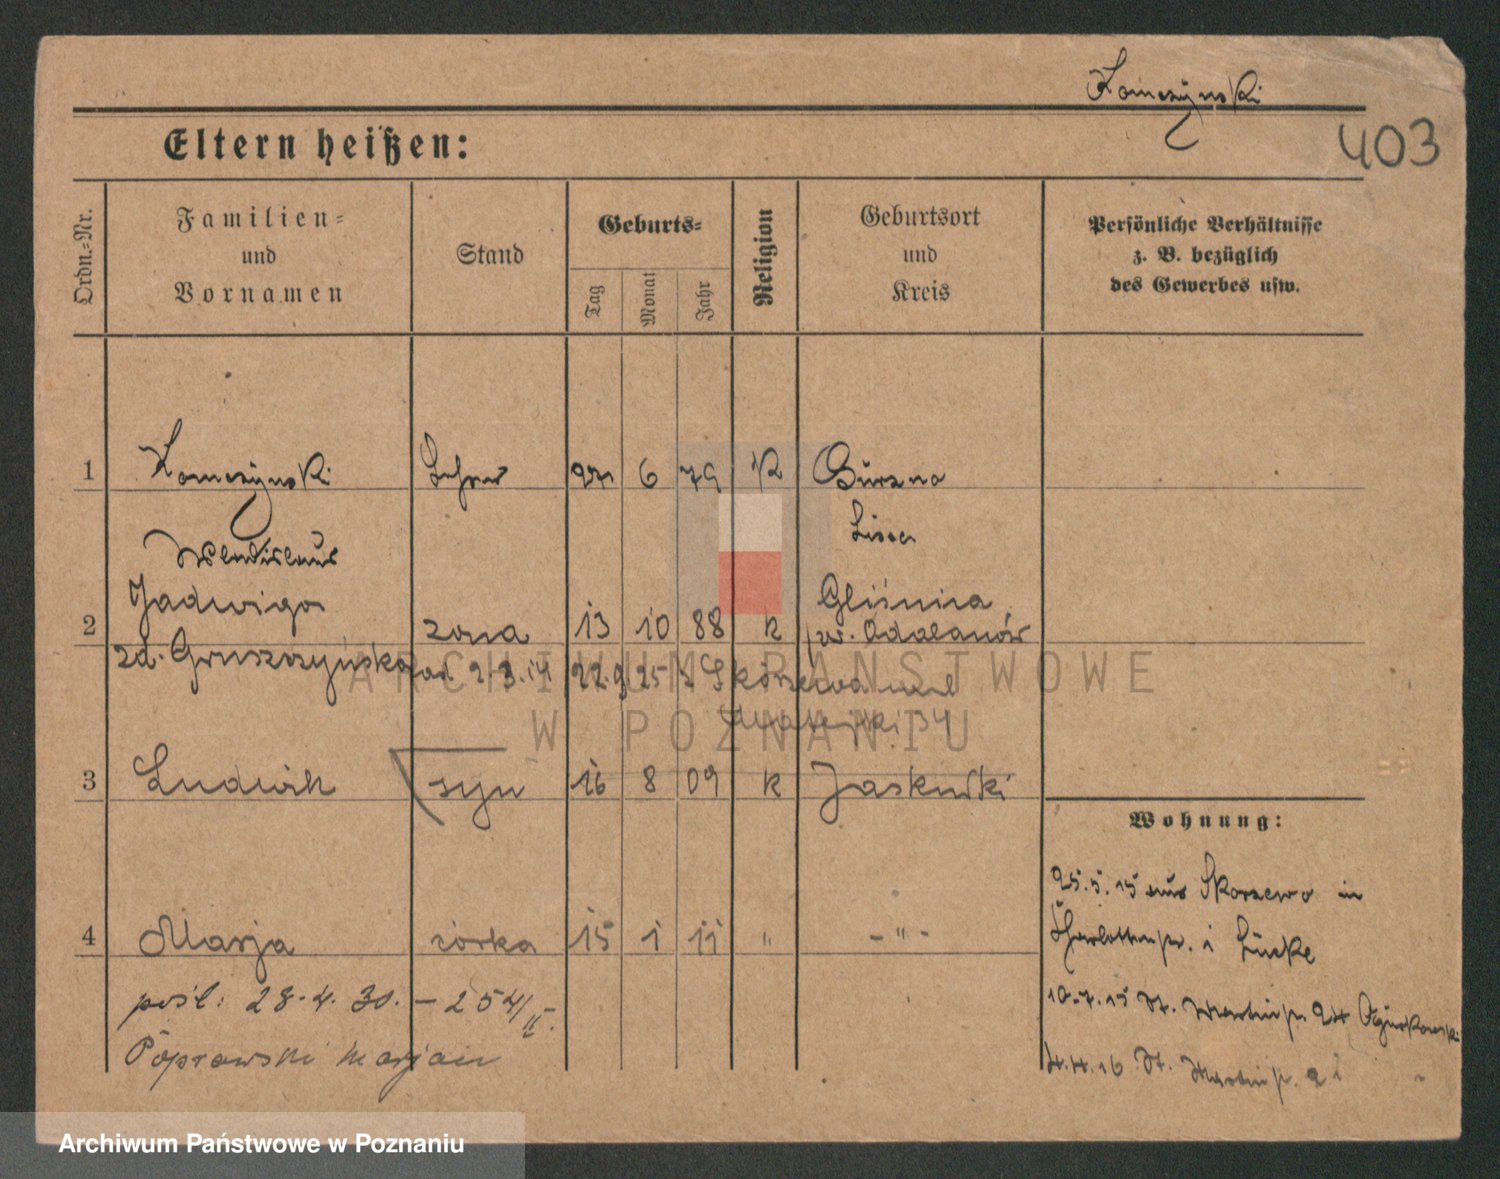 Komczyński
403
Eltern heißen:
Ordn.-Nr.
Familien- und Vornamen
Stand
Geburts-
Tag
Monat
Jahr
Religion
Geburtsort und Kreis
Persönliche Verhältnisse z. B. bezüglich des Gewerbes usw.
1 Komczyński Lehrer 27 6 79 K
Lissa
Wladislaus
Jadwiga Gliśnica
2 żona 13 10 88 k pow. Odolanów
zd. Gruszczyńska 2.3.14 22.9.25 z Skórzewa
34
3 Ludwik syn 16 8 09 k Jaskułki
Wohnung:
25.5.15 aus Skorzewo in
4 Marja córka 15 1 11 " - " -
Charlottenstr. Lücke
pośl: 28.4.30. - 254/II.
10.7.15 St. Martinstr. 24
Poprawski Marjan
4.4.16 St. Martinstr. 2
ARCHIWUM PAŃSTWOWE
W POZNANIU
Archiwum Państwowe w Poznaniu